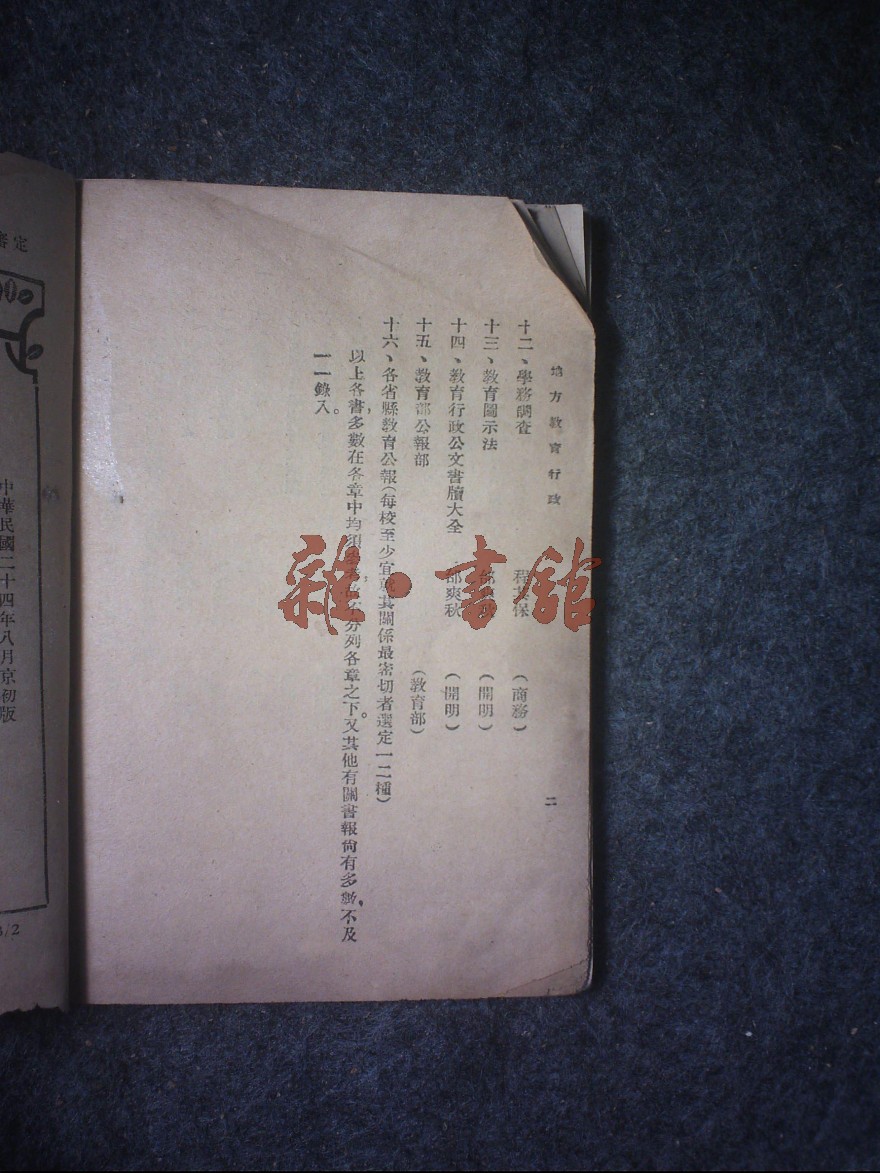 地方教育行政
二
十二、學務調查 程其保 (商務)
十三、教育圖示法 邰爽秋 (開明)
十四、教育行政公文書牘大全 邰爽秋 (開明)
十五、教育部公報部 (教育部)
十六、各省縣教育公報(每校至少宜就其關係最密切者選定一二種)
以上各書,多數在各章中均須參考,故不分列各章之下。又其他有關書報尙有多數,不及
一一錄入。
雜·書館
審定
中華民國二十四年八月京初版
3/2